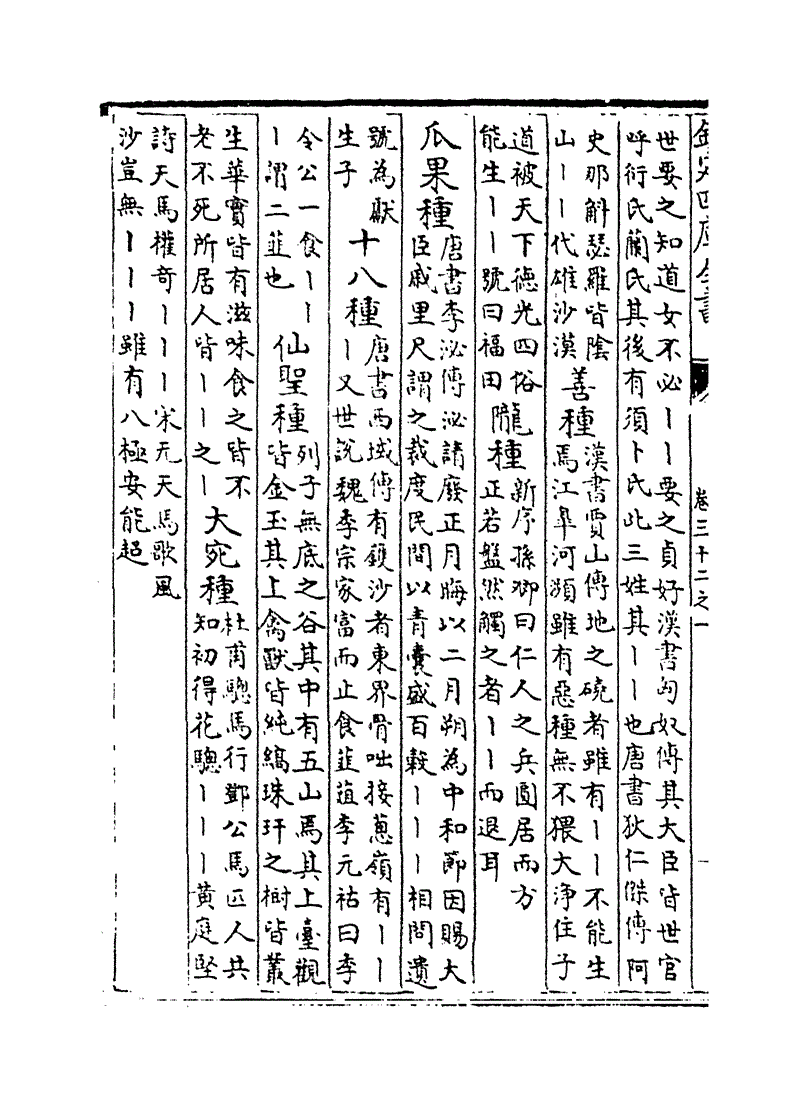 欽定四庫全書
卷三十二之一
世要之知道女不必〡〡要之貞好漢書匈奴傳其大臣皆世官
呼衍氏蘭氏其後有須卜氏此三姓其〡〡也唐書狄仁傑傳阿
史那斛瑟羅皆陰
山〡〡代雄沙漠
善種
漢書賈山傳地之磽者雖有〡〡不能生
焉江臯河瀕雖有惡種無不猥大淨住子
道被天下德光四俗
能生〡〡號曰福田
隴種
新序孫卿曰仁人之兵圓居而方
正若盤然觸之者〡〡而退耳
瓜果種
唐書李泌傳泌請廢正月晦以二月朔為中和節因賜大
臣戚里尺謂之裁度民間以青囊盛百穀〡〡〡相問遺
號為獻
生子
十八種
唐書西域傳有鏺沙者東界骨咄接蔥嶺有〡〡
〡又世說魏李宗家富而止食韮葅李元祐曰李
令公一食〡〡
〡謂二韮也
仙聖種
列子無底之谷其中有五山焉其上臺觀
皆金玉其上禽獸皆純縞珠玕之樹皆叢
生華實皆有滋味食之皆不
老不死所居人皆〡〡之〡
大宛種
杜甫驄馬行鄧公馬匹人共
知初得花驄〡〡〡黃庭堅
詩天馬權奇〡〡〡宋无天馬歌風
沙豈無〡〡〡雖有八極安能超